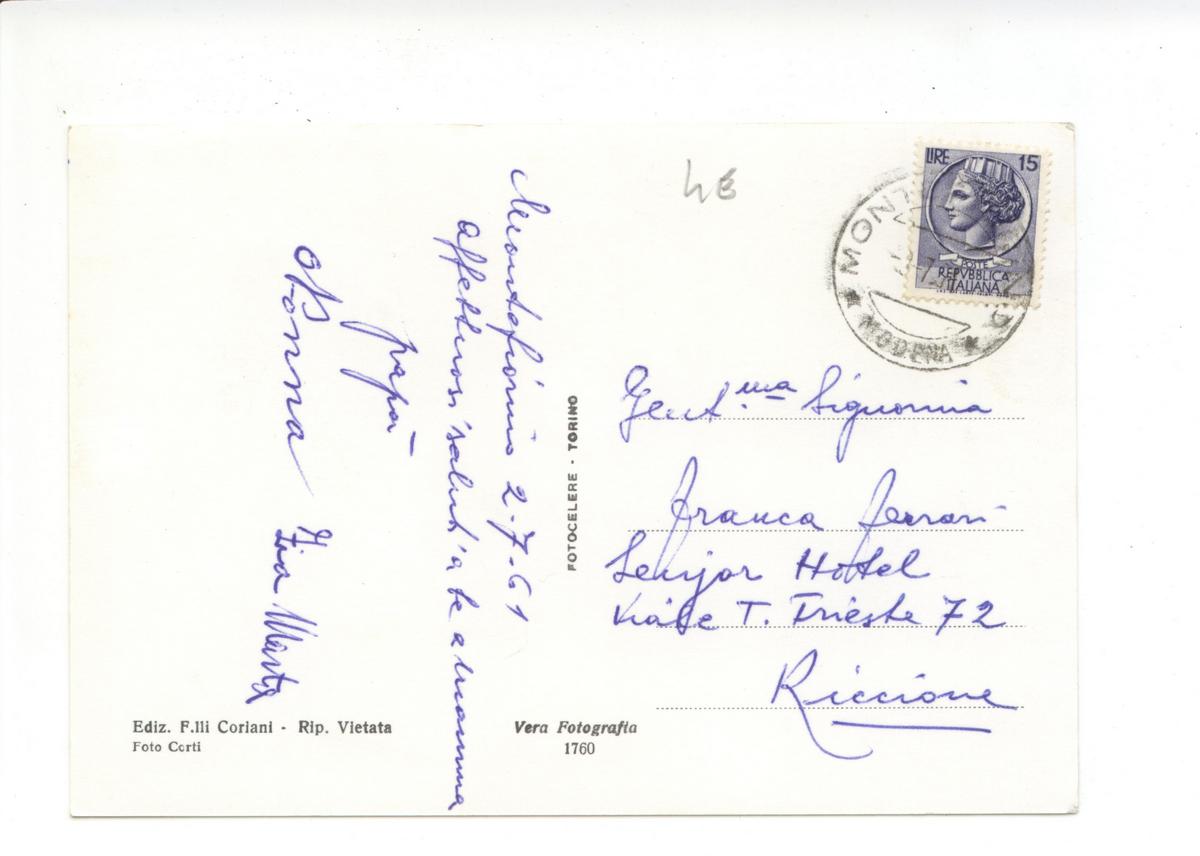 Montefiorino 2-7-61
affettuosi saluti a te a mamma
papà
Nonna Zia Marta
48
LIRE 15
POSTE
REPVBBLICA
ITALIANA
MODENA
FOTOCELERE - TORINO
Gent.ma Signorina
Franca Ferrari
Senjor Hotel
Viale T. Trieste 72
Riccione
Ediz. F.lli Coriani - Rip. Vietata
Foto Corti
Vera Fotografia
1760